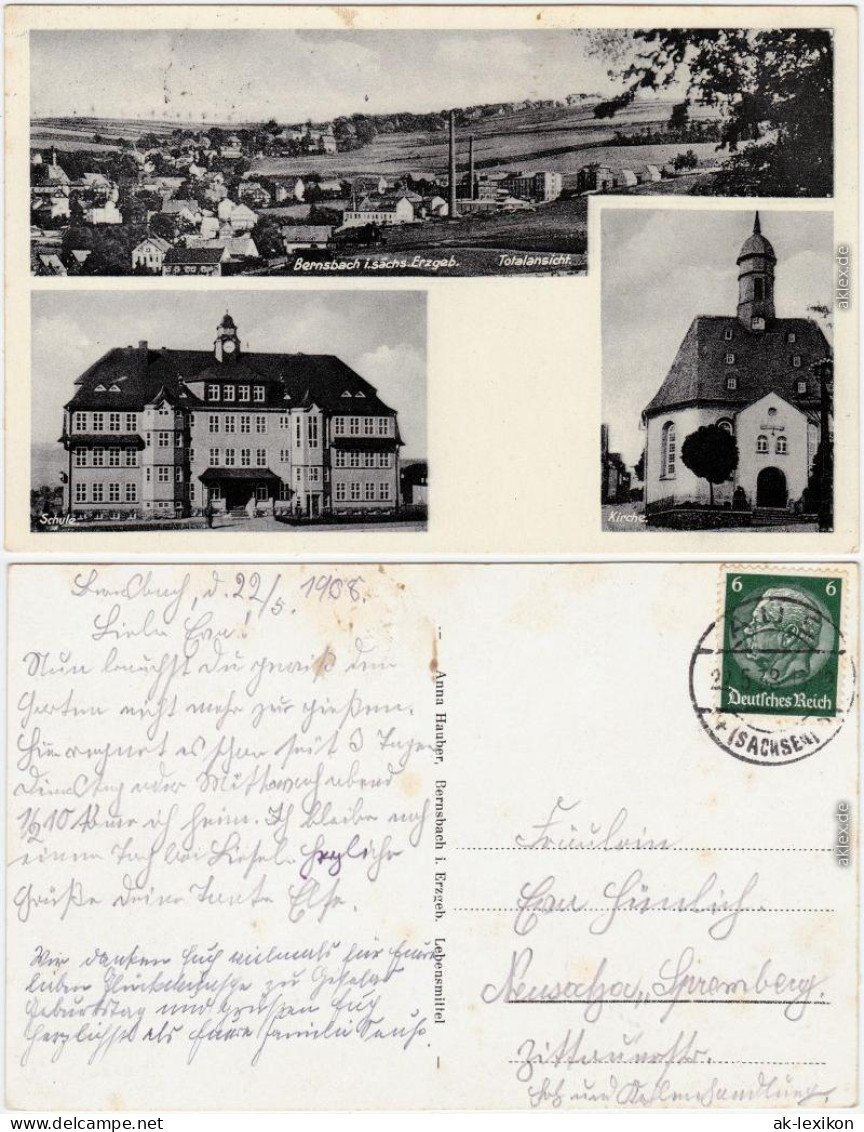 Bernsbach i. sächs. Erzgeb. Totalansicht.
Schule
Kirche.
aklex.de
Bernsbach, d. 22/5. 1938.
Liebe Eva!
Nun brauchst Du gewiß den
Garten nicht mehr zu gießen.
Hier regnet es schon seit 3 Tagen
Dienstag oder Mittwoch abend
1/2 10 komme ich heim. Ich bleibe noch
einen Tag bei Liesel. Herzliche
Grüße Deine Tante Else.
Wir danken Euch vielmals für Eure
lieben Glückwünsche zu
Geburtstag und grüßen Euch
herzlichst als Eure Familie
Anna Hauber, Bernsbach i. Erzgeb. Lebensmittel
6 6
Deutsches Reich
(SACHSEN)
Fräulein
Eva
Neusalza-Spremberg.
Zittauerstr.
Holz und Kohlenhandlung.
aklex.de
www.ak-lexikon.de ak-lexikon